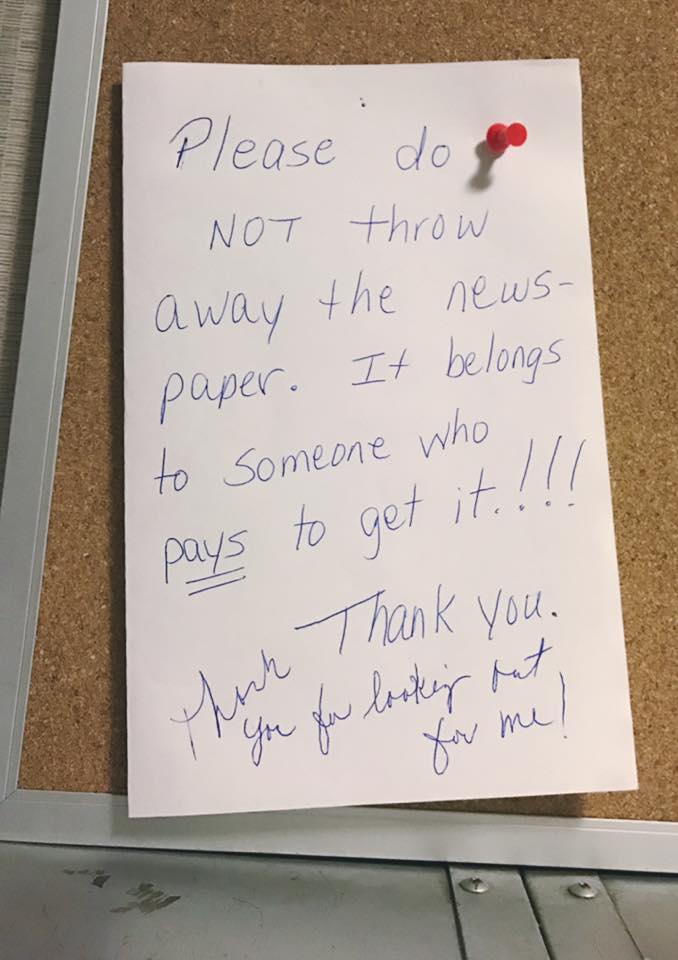 Please do
NOT throw
away the news-
paper. It belongs
to someone who
pays to get it.!!!
Thank you.
Thank
you for looking out
for me!